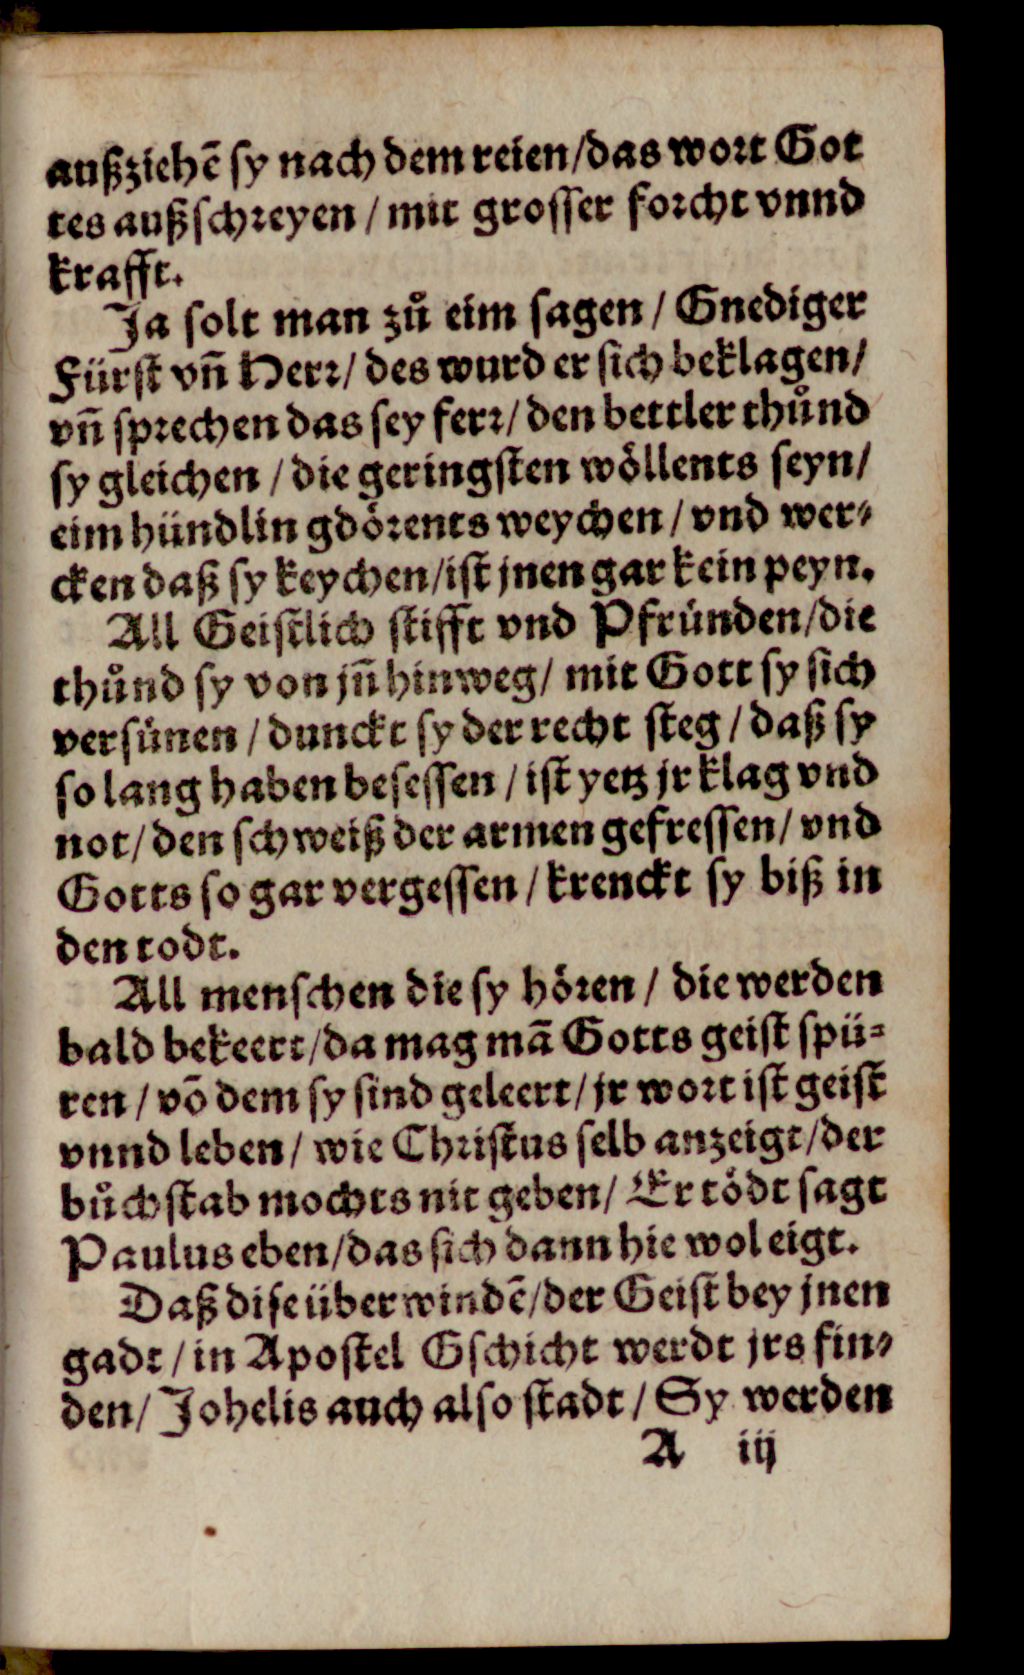 außziehē sy nach dem reien/das wort Got
tes außschreyen / mit grosser forcht vnnd
krafft.
Ja solt man zů eim sagen / Gnediger
Fürst vñ Herr/ des wurd er sich beklagen/
vñ sprechen das sey ferr/ den bettler thůnd
sy gleichen / die geringsten wöllents seyn/
eim hündlin gdörents weychen / vnd wer⸗
cken daß sy keychen/ist jnen gar kein peyn.
All Geistlich stifft vnd Pfrůnden/die
thůnd sy von jñ hinweg/ mit Gott sy sich
versünen / dunckt sy der recht steg / daß sy
so lang haben besessen / ist yetz jr klag vnd
not/ den schweiß der armen gefressen/ vnd
Gotts so gar vergessen / krenckt sy biß in
den todt.
All menschen die sy hören / die werden
bald bekeert/da mag mā Gotts geist spü⸗
ren / vō dem sy sind geleert/ jr wort ist geist
vnnd leben/ wie Christus selb anzeigt/der
bůchstab mochts nit geben/ Er tödt sagt
Paulus eben/das sich dann hie wol eigt.
Daß dise überwindē/der Geist bey jnen
gadt / in Apostel Gschicht werdt jrs fin⸗
den/ Johelis auch also stadt / Sy werden
A iij